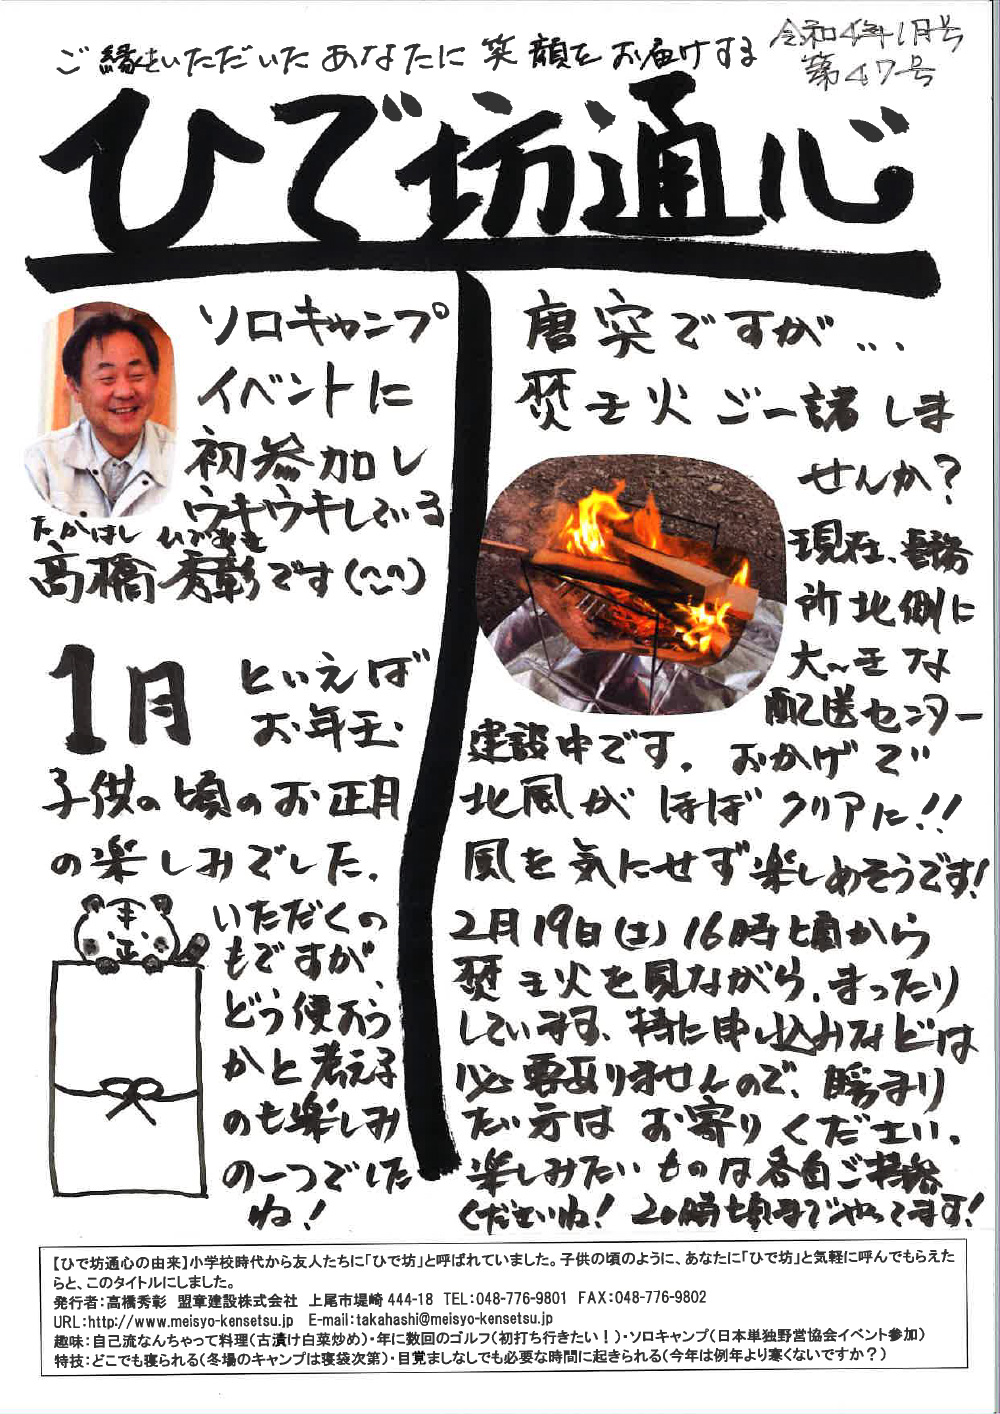 ご縁をいただいたあなたに笑顔をお届けする
令和4年1月号
第47号
ひで坊通心
ソロキャンプ
イベントに
初参加し
ウキウキしている
たかはし ひであき
高橋秀彰です(^^)
1月といえば
お年玉、
子供の頃のお正月
の楽しみでした。
いただくの
もですが、
どう使おう
かと考える
のも楽しみ
の一つでした
ね!
唐突ですが...
焚き火ご一諸しま
せんか?
現在、事務
所北側に
大〜きな
配送センター
建設中です。おかげで
北風がほぼクリアに!!
風を気にせず楽しめそうです!
2月19日(土)16時頃から
焚き火を見ながら、まったり
しています。特に申し込みなどは
必要ありませんので、暖まり
たい方はお寄りください。
楽しみたいものは各自ご持参
くださいね!20時頃までやってます!
【ひで坊通心の由来】小学校時代から友人たちに「ひで坊」と呼ばれていました。子供の頃のように、あなたに「ひで坊」と気軽に呼んでもらえた
らと、このタイトルにしました。
発行者:高橋秀彰 盟章建設株式会社 上尾市堤崎444-18 TEL:048-776-9801 FAX:048-776-9802
URL:http://www.meisyo-kensetsu.jp E-mail:takahashi@meisyo-kensetsu.jp
趣味:自己流なんちゃって料理(古漬け白菜炒め)・年に数回のゴルフ(初打ち行きたい!)・ソロキャンプ(日本単独野営協会イベント参加)
特技:どこでも寝られる(冬場のキャンプは寝袋次第)・目覚ましなしでも必要な時間に起きられる(今年は例年より寒くないですか?)